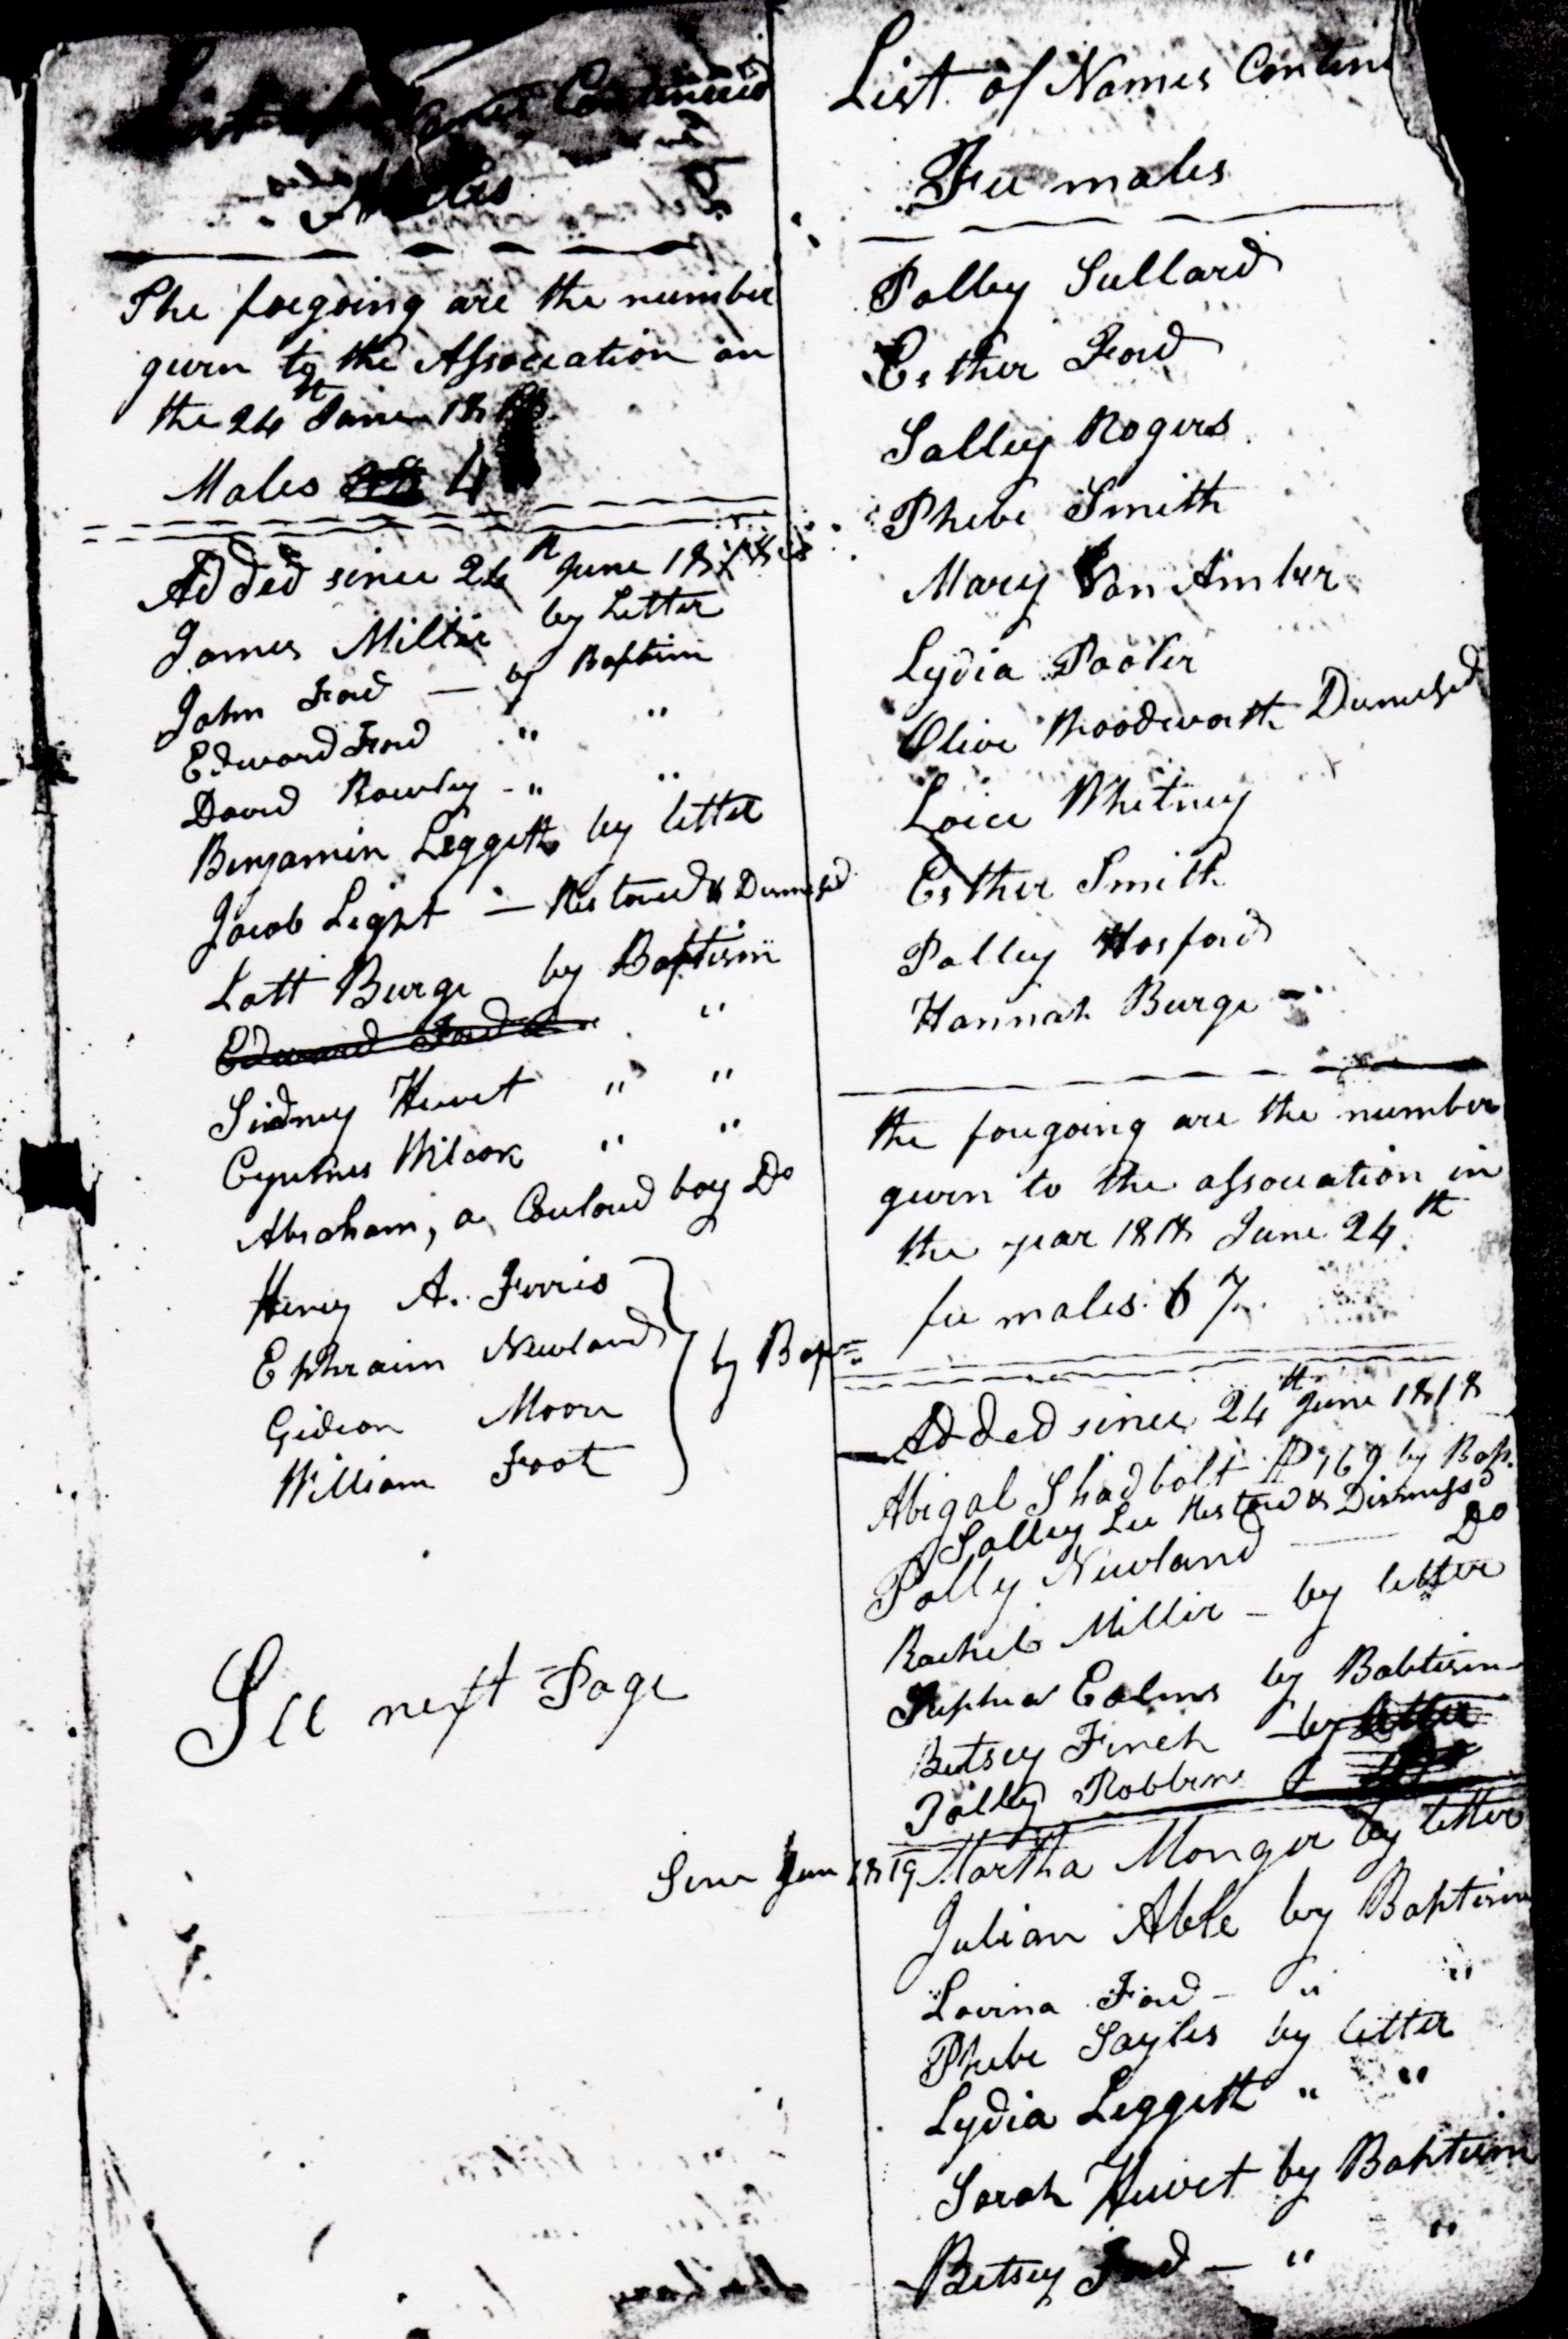 List of Names Continued
Males
The foregoing are the number
given to the Association on
the 24th June 1818
Males 4
Added since 24th June 1818
James Miller by Letter
John Ford — by Baptism
Edward Ford " "
David Rowley - " "
Benjamin Leggett by letter
Jacob Light — Restored & Dismissd
Lott Burge by Baptism
Edward Ford "
Sidney Hewet " "
Cyrenus Wilcox " "
Abraham, a Coulourd boy Do
Henry A. Ferris
Ephraim Newland
Gideon Moore
William Foot
by Bapm
See next Page
List of Names Contin
Fee males
Polley Sullard
Esther Ford
Salley Rogers
Phebe Smith
Mary Van Amber
Lydia Pooler
Olive Woodworth Dismissd
Loice Whitney
Esther Smith
Polley Hosford
Hannah Burge
the foregoing are the number
given to the association in
the year 1818 June 24th
fee males 67
Added since 24th June 1818
Abigal Shadbolt P. 169 by Bap.
Salley Lee Restord & Dismissd
Polly Newland — Do
Rachel Miller - by letter
by Babtism
Betsey Finch by letter
Polley Robbins
Since June 1819 Martha Monger by letter
Julian Able by Baptism
Lovina Ford - " "
Phebe Sayles by letter
Lydia Leggett " "
Sarah Hewet by Baptism
Betsey Ford — " "